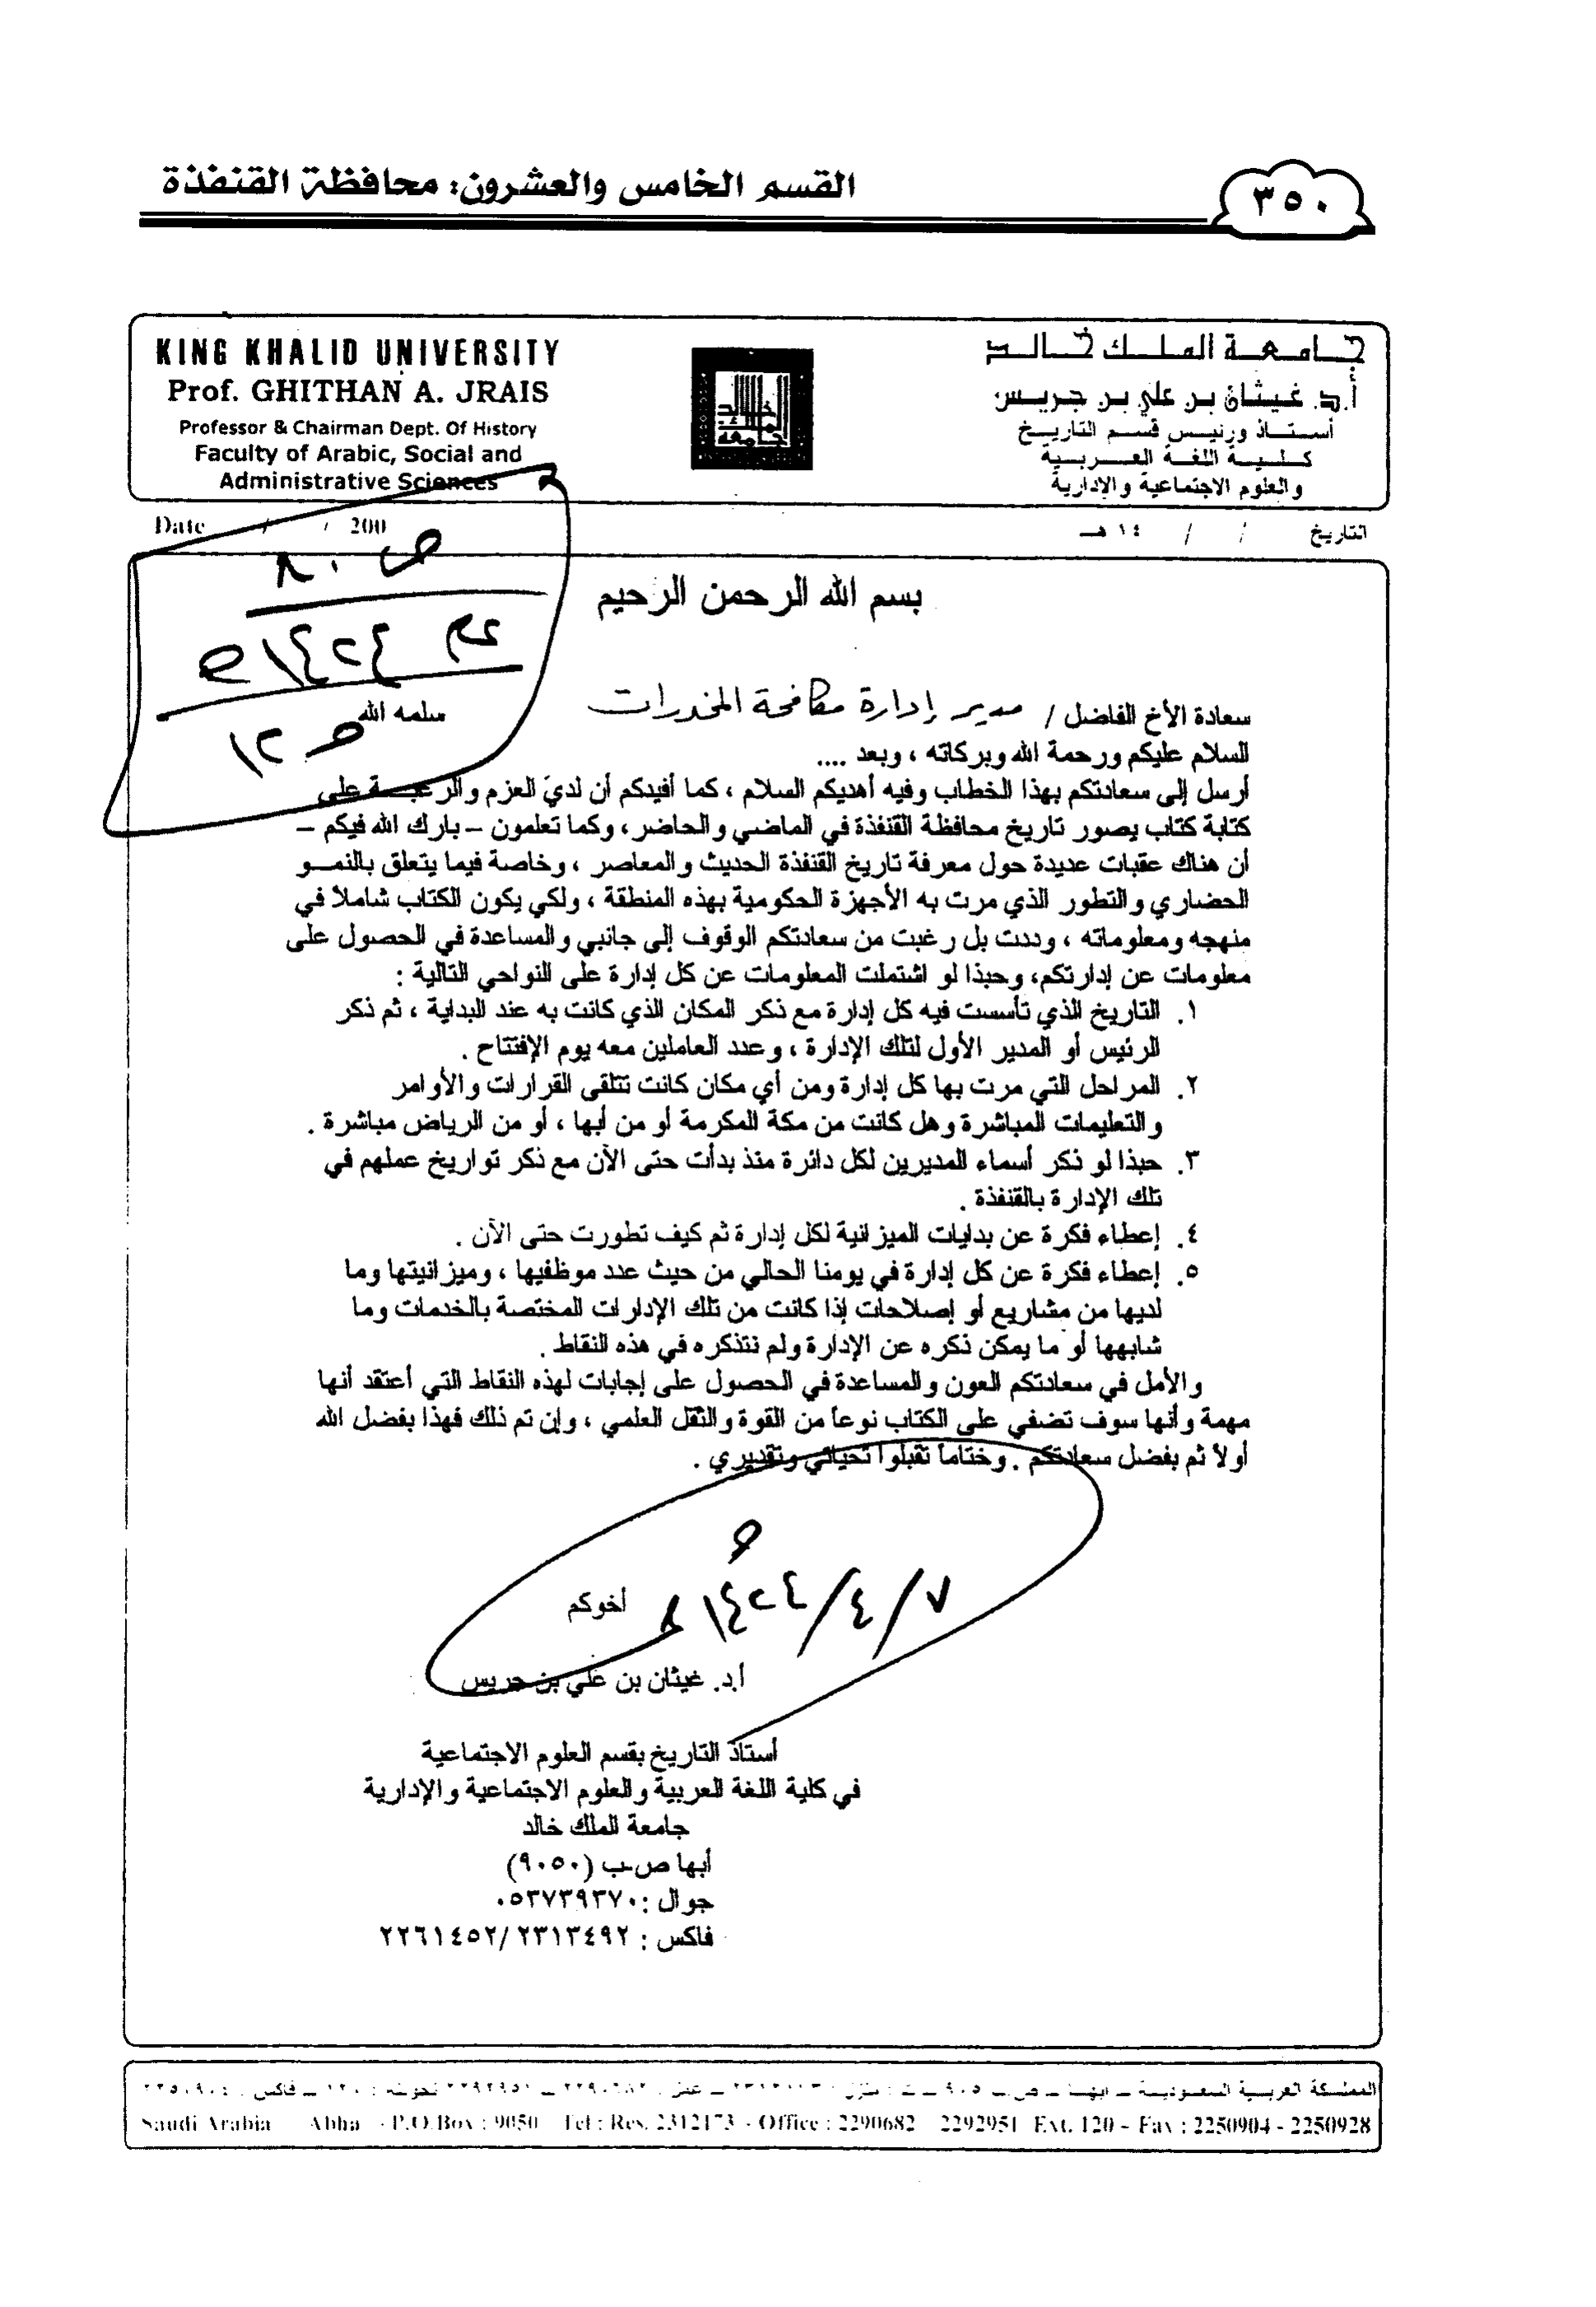 ٣٥٠
القسم الخامس والعشرون: محافظة القنفذة
جامعة الملك خالد
أ.د. غيثان بن علي بن جريس
أستاذ ورئيس قسم التاريخ
كلية اللغة العربية
والعلوم الاجتماعية والإدارية
KING KHALID UNIVERSITY
Prof. GHITHAN A. JRAIS
Professor & Chairman Dept. Of History
Faculty of Arabic, Social and
Administrative Sciences
التاريخ / / ١٤ هـ
Date / / 200
بسم الله الرحمن الرحيم
سعادة الأخ الفاضل / مدير إدارة مكافحة المخدرات سلمه الله
السلام عليكم ورحمة الله وبركاته ، وبعد ....
أرسل إلى سعادتكم بهذا الخطاب وفيه أهديكم السلام ، كما أفيدكم أن لديّ العزم والرغبة على
كتابة كتاب يصور تاريخ محافظة القنفذة في الماضي والحاضر، وكما تعلمون – بارك الله فيكم –
أن هناك عقبات عديدة حول معرفة تاريخ القنفذة الحديث والمعاصر ، وخاصة فيما يتعلق بالنمو
الحضاري والتطور الذي مرت به الأجهزة الحكومية بهذه المنطقة ، ولكي يكون الكتاب شاملا في
منهجه ومعلوماته ، وددت بل رغبت من سعادتكم الوقوف إلى جانبي والمساعدة في الحصول على
معلومات عن إدارتكم، وحبذا لو اشتملت المعلومات عن كل إدارة على النواحي التالية :
١. التاريخ الذي تأسست فيه كل إدارة مع ذكر المكان الذي كانت به عند البداية ، ثم ذكر
الرئيس أو المدير الأول لتلك الإدارة ، وعدد العاملين معه يوم الإفتتاح .
٢. المراحل التي مرت بها كل إدارة ومن أي مكان كانت تتلقى القرارات والأوامر
والتعليمات المباشرة وهل كانت من مكة المكرمة أو من أبها ، أو من الرياض مباشرة .
٣. حبذا لو ذكر أسماء المديرين لكل دائرة منذ بدأت حتى الآن مع ذكر تواريخ عملهم في
تلك الإدارة بالقنفذة .
٤. إعطاء فكرة عن بدايات الميزانية لكل إدارة ثم كيف تطورت حتى الآن .
٥. إعطاء فكرة عن كل إدارة في يومنا الحالي من حيث عدد موظفيها ، وميزانيتها وما
لديها من مشاريع أو إصلاحات إذا كانت من تلك الإدارات المختصة بالخدمات وما
شابهها أو ما يمكن ذكره عن الإدارة ولم نتذكره في هذه النقاط .
والأمل في سعادتكم العون والمساعدة في الحصول على إجابات لهذه النقاط التي أعتقد أنها
مهمة وأنها سوف تضفي على الكتاب نوعاً من القوة والثقل العلمي ، وإن تم ذلك فهذا بفضل الله
أولاً ثم بفضل سعادتكم . وختاماً تقبلوا تحياتي وتقديري .
١٤٢٤/٤/٧
أخوكم
أ.د. غيثان بن علي بن جريس
أستاذ التاريخ بقسم العلوم الاجتماعية
في كلية اللغة العربية والعلوم الاجتماعية والإدارية
جامعة الملك خالد
أبها ص.ب (٩٠٥٠)
جوال : ٠٥٣٧٣٩٣٧٠
فاكس : ٢٢٦١٤٥٢/٢٣١٣٤٩٢
المملكة العربية السعودية – أبها
Saudi Arabia Abha - P.O.Box : 9050 Tel : Res. 2312173 - Office : 2290682 2292951 Ext. 120 - Fax : 2250904 - 2250928